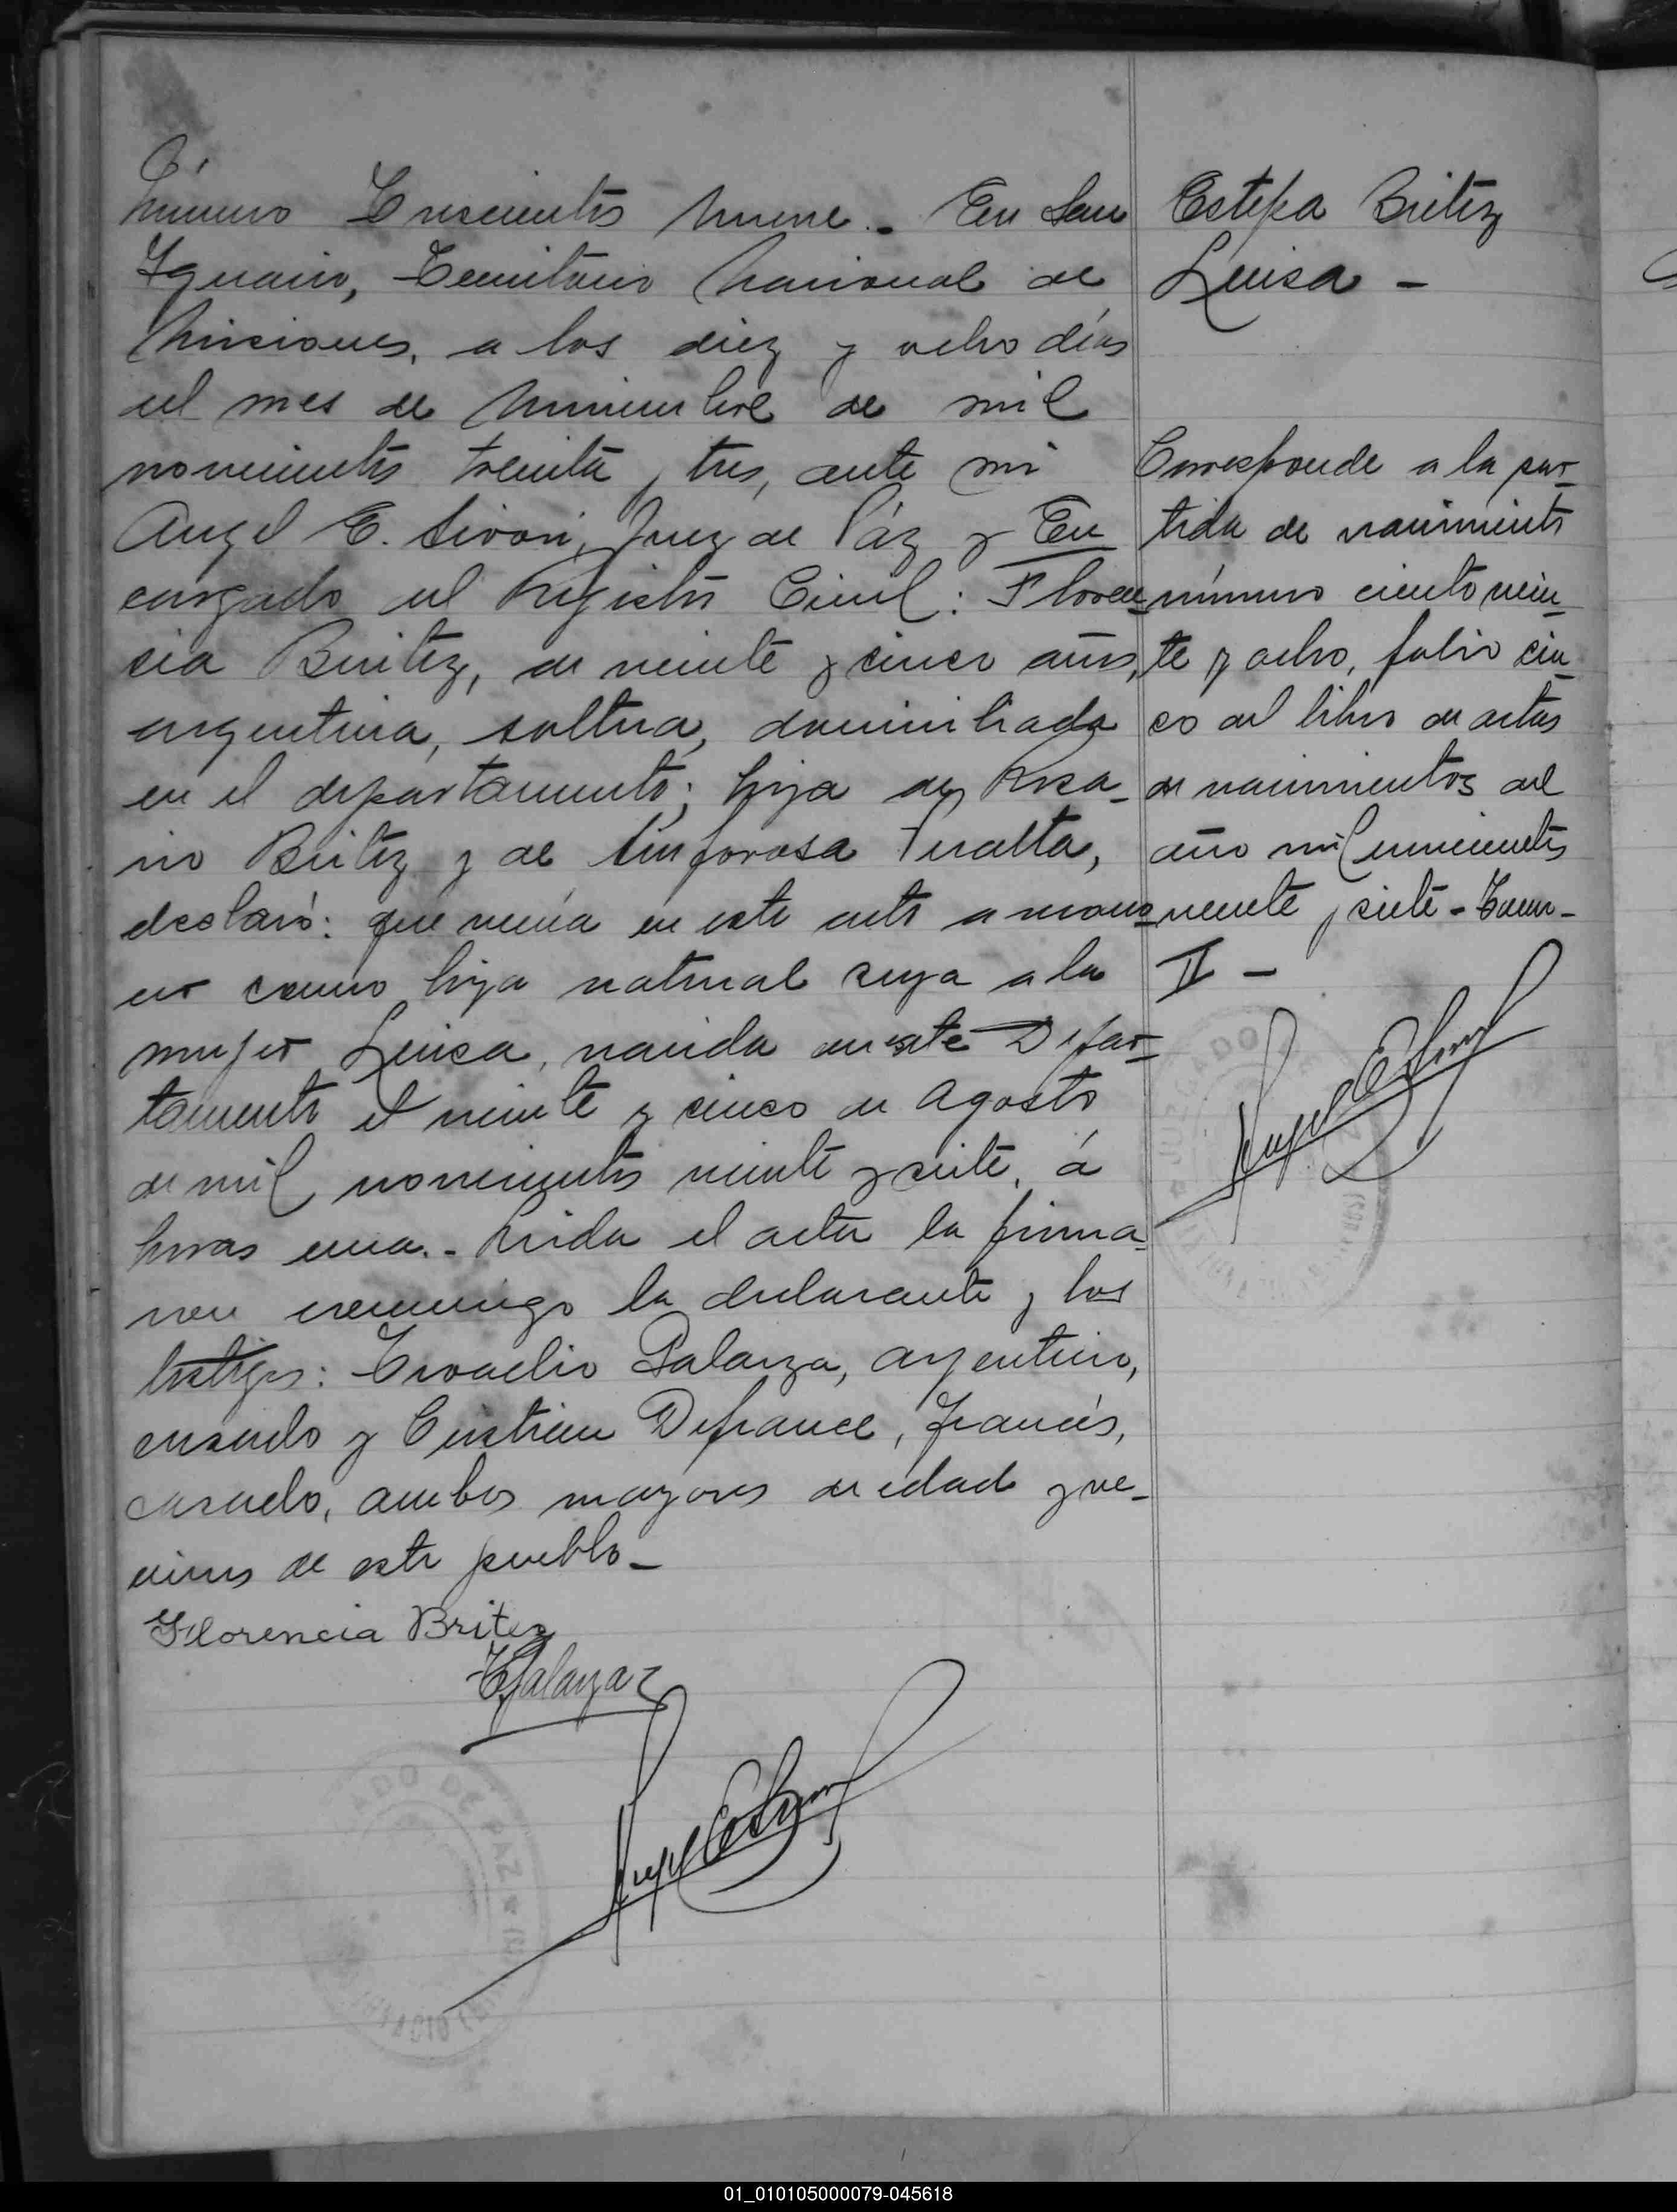 Número Trescientos Nueve. - En San
Ignacio, Territorio Nacional de
Misiones, a los diez y ocho días
del mes de Noviembre de mil
novecientos treinta y tres, ante mi
Angel E. Sivori, Juez de Páz y En
cargado del Registro Civil: Floren-
cia Britez, de veinte y cinco años,
argentina, soltera, domiciliada
en el departamento; hija de Rosa-
rio Britez y de Sinforosa Peralta,
declaró: que venía en este acto a recono-
cer como hija natural suya a la
mujer Luisa, nacida en este Depar-
tamento el veinte y cinco de Agosto
de mil novecientos veinte y siete, á
horas una. - Leida el acta la firma-
ron conmigo la declarante y los
testigos: Galarza, argentino,
casado y Cristian Defrance, francés,
casado, ambos mayores de edad y ve-
cinos de este pueblo -
Florencia Britez
Galarza
Angel E. Sivori
JUZGADO DE PAZ
Estefa Britez
Luisa -
Corresponde a la par-
tida de nacimiento
número ciento vein-
te y ocho, folio cin-
co del libro de actas
de nacimientos del
año mil novecientos
veinte y siete - Tomo -
II -
Angel E. Sivori
01_010105000079-045618